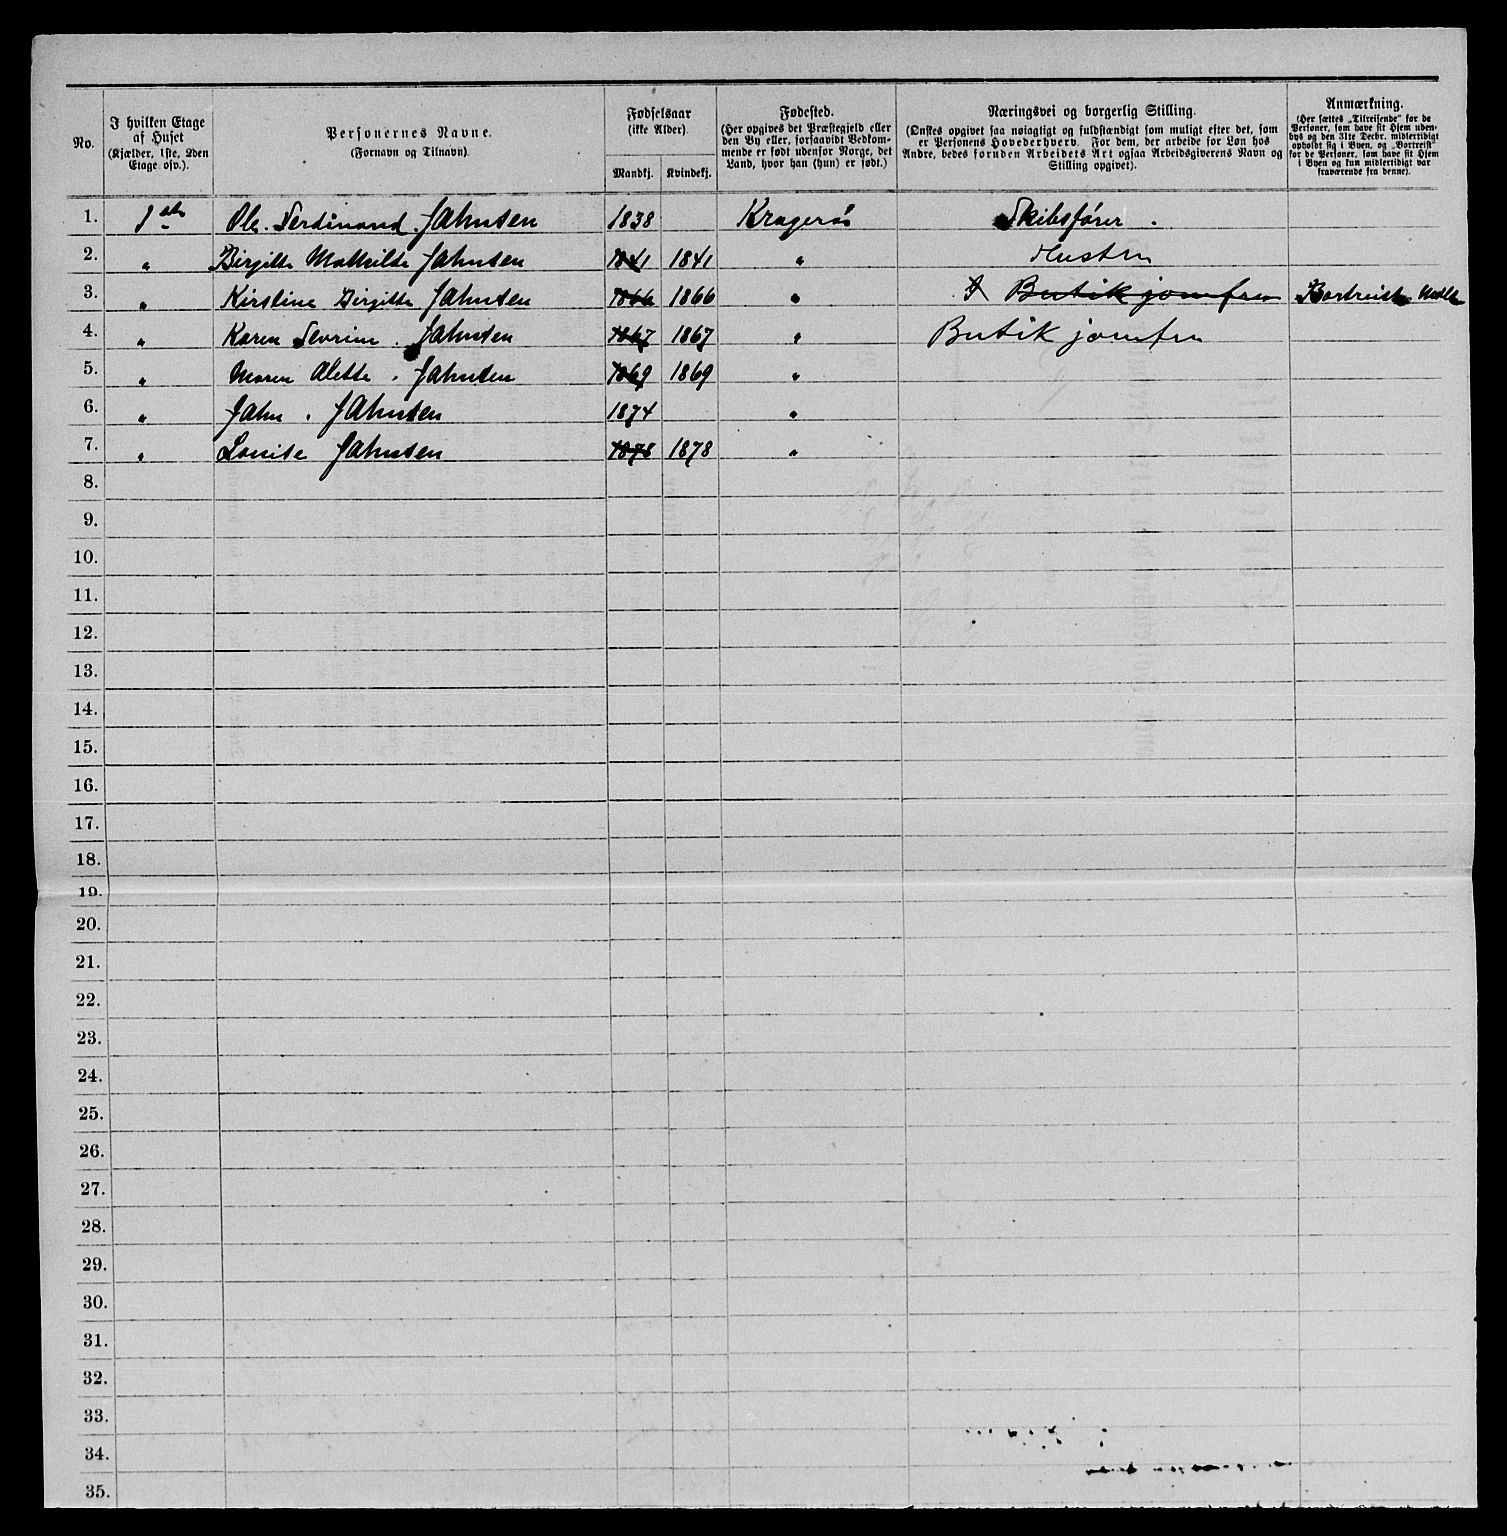 No.
I hvilken Etage
af Huset
(Kjælder, 1ste, 2den
Etage osv.).
Personernes Navne.
(Fornavn og Tilnavn).
Fødselsaar
(ikke Alder).
Mandkj. Kvindekj.
Fødested.
(Her opgives det Præstegjeld eller
den By eller, forsaavidt Vedkom-
mende er født udenfor Norge, det
Land, hvor han (hun) er født.)
Næringsvei og borgerlig Stilling.
(Ønskes opgivet saa nøiagtigt og fuldstændigt som muligt efter det, som
er Personens Hovederhverv. For dem, der arbeide for Løn hos
Andre, bedes foruden Arbeidets Art ogsaa Arbeidsgiverens Navn og
Stilling opgivet).
Anmærkning.
(Her sættes „Tilreisende“ for de
Personer, som have sit Hjem uden-
bys og den 31te Decbr. midlertidigt
opholdt sig i Byen, og „Bortreist“
for de Personer, som have sit Hjem
i Byen og kun midlertidigt var
fraværende fra denne).
1. 1ste Ole. Ferdinand. Jahnsen 1838 Kragerö Skibsförer.
2. " Birgitte Mathilde Jahnsen 1841 1841 " Hustru
3. " Kirstine Birgitte Jahnsen 1866 1866 " Butik jomfru Bortreist
4. " Karen Sevrine. Jahnsen 1867 1867 " Butik jomfru
5. " Maren Alette. Jahnsen 1869 1869 "
6. " Jahn. Jahnsen 1874 "
7. " Louise Jahnsen 1878 1878 "
8.
9.
10.
11.
12.
13.
14.
15.
16.
17.
18.
19.
20.
21.
22.
23.
24.
25.
26.
27.
28.
29.
30.
31.
32.
33.
34.
35.